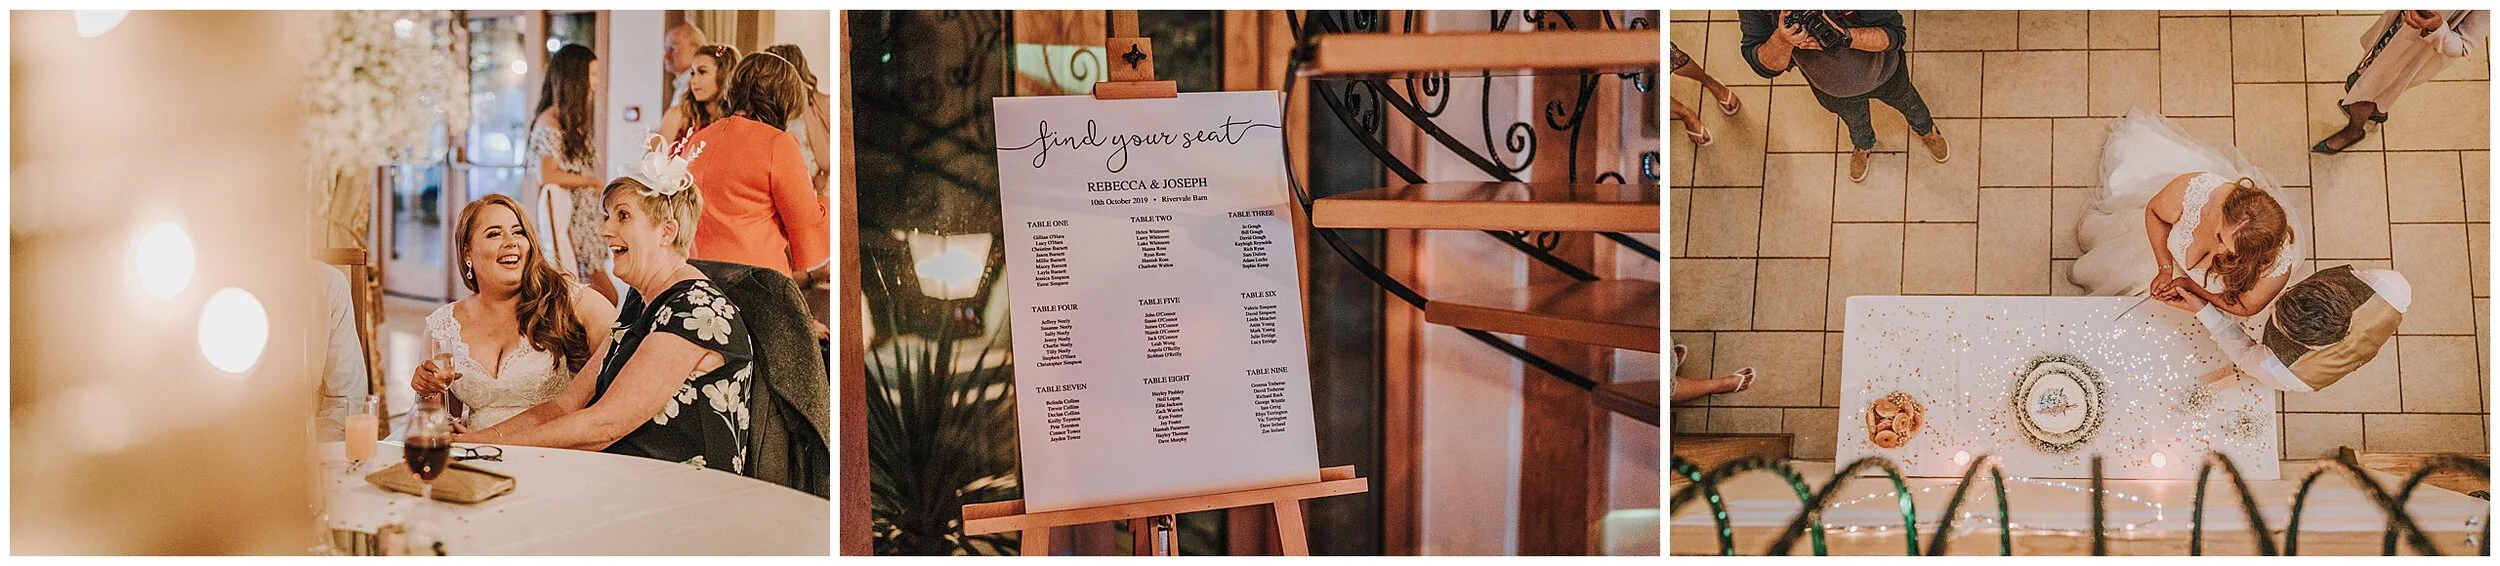 find your seat
REBECCA & JOSEPH
10th October 2019 • Rivervale Barn
TABLE ONE
Gillian O'Hara
Lucy O'Hara
Christine Barnett
Jason Barnett
Millie Barnett
Macey Barnett
Layla Barnett
Jessica Simpson
Esme Simpson
TABLE TWO
Helen Whitmore
Larry Whitmore
Luke Whitmore
Hanna Ross
Ryan Ross
Hamish Ross
Charlotte Walton
TABLE THREE
Jo Gough
Bill Gough
David Gough
Kayleigh Reynolds
Rich Ryan
Sam Dubru
Adam Locke
Sophie Kemp
TABLE FOUR
Jeffery Neely
Susanne Neely
Sally Neely
Jenny Neely
Charlie Neely
Tilly Neely
Stephen O'Hara
Christopher Simpson
TABLE FIVE
John O'Connor
Susan O'Connor
James O'Connor
Niamh O'Connor
Jack O'Connor
Leah Wong
Angela O'Reilly
Siobhan O'Reilly
TABLE SIX
Valerie Simpson
David Simpson
Linda Meacher
Anita Young
Mark Young
Julie Erridge
Lucy Erridge
TABLE SEVEN
Belinda Collins
Trevor Collins
Declan Collins
Keilly Toynton
Pete Toynton
Connor Tower
Jayden Tower
TABLE EIGHT
Hayley Pashley
Neil Logan
Ellie Jackson
Zack Warrick
Kym Foster
Jay Foster
Hannah Paramore
Hayley Thomas
Dave Murphy
TABLE NINE
Gemma Treherne
David Treherne
Richard Buck
George Whittle
Iain Greig
Rhys Torrington
Vic Torrington
Dave Ireland
Zoe Ireland